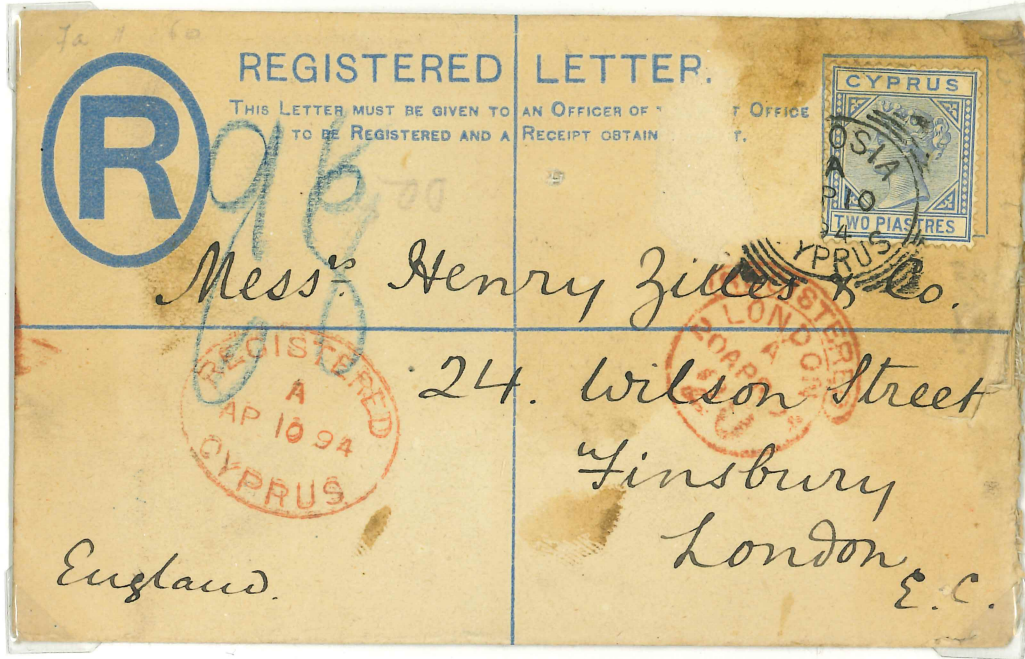 REGISTERED LETTER.
THIS LETTER MUST BE GIVEN TO AN OFFICER OF OFFICE
TO BE REGISTERED AND A RECEIPT OBTAIN T.
R
CYPRUS
TWO PIASTRES
OSIA
A
AP 10
94
CYPRUS
Messrs. Henry Zilles & Co.
24. Wilson Street
Finsbury
London
E. C.
England.
REGISTERED
A
AP 10 94
CYPRUS
REGISTERED
LONDON
A
20 AP 94